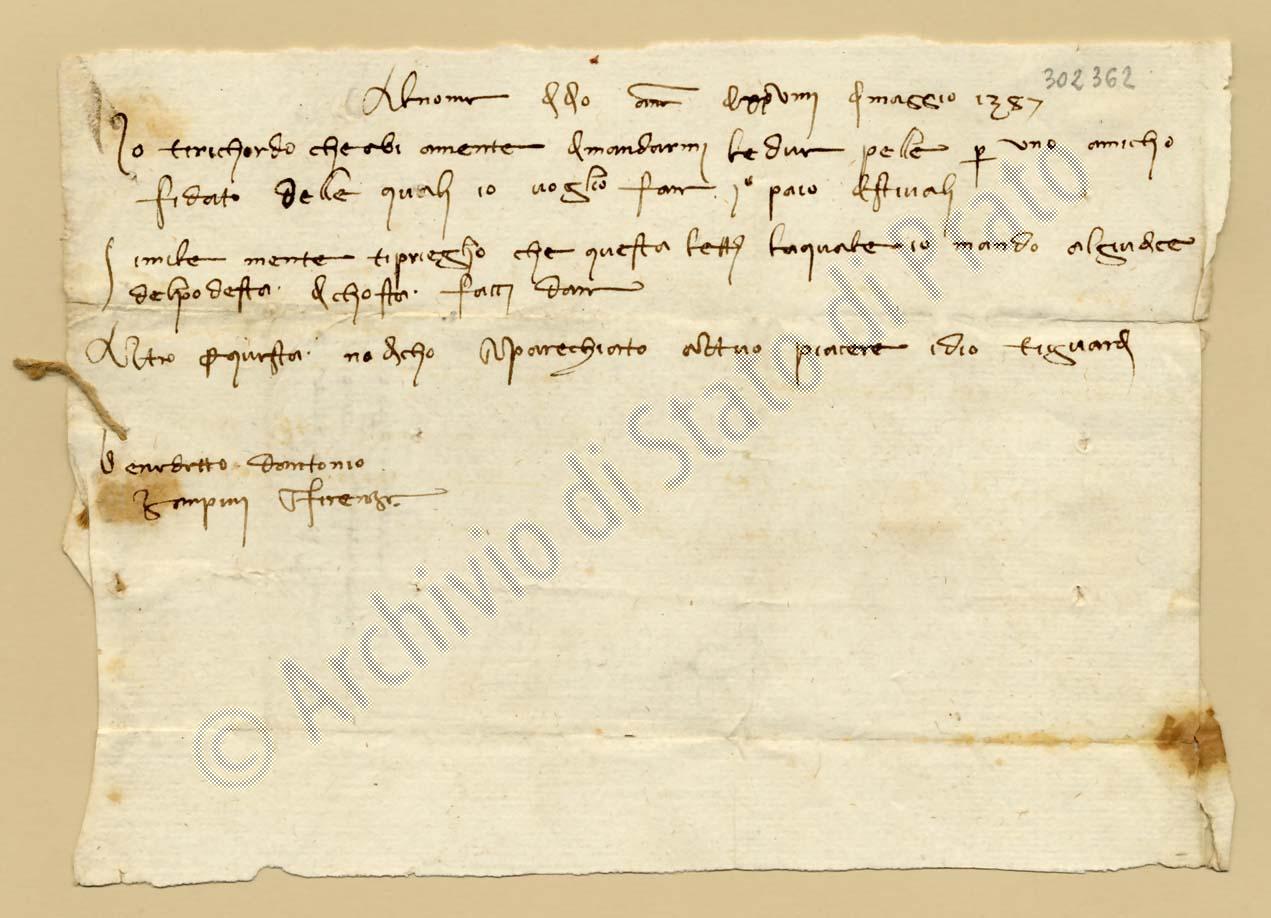 302362
Al nome di dio am̅ di xxviiii di maggio 1387
Io ti richordo che abi a mente di mandarmi le due pelle p uno amicho
fidato delle quali io voglio fare 1º paio distivali
Simile mente ti priegho che questa lettª la quale io mando al giudice
del podesta di chosta facci dare
Altro p questa no dicho aparechiato al tuo piacere idio ti guardi
Benedetto dantonio
Zampini i firenze
© Archivio di Stato di Prato